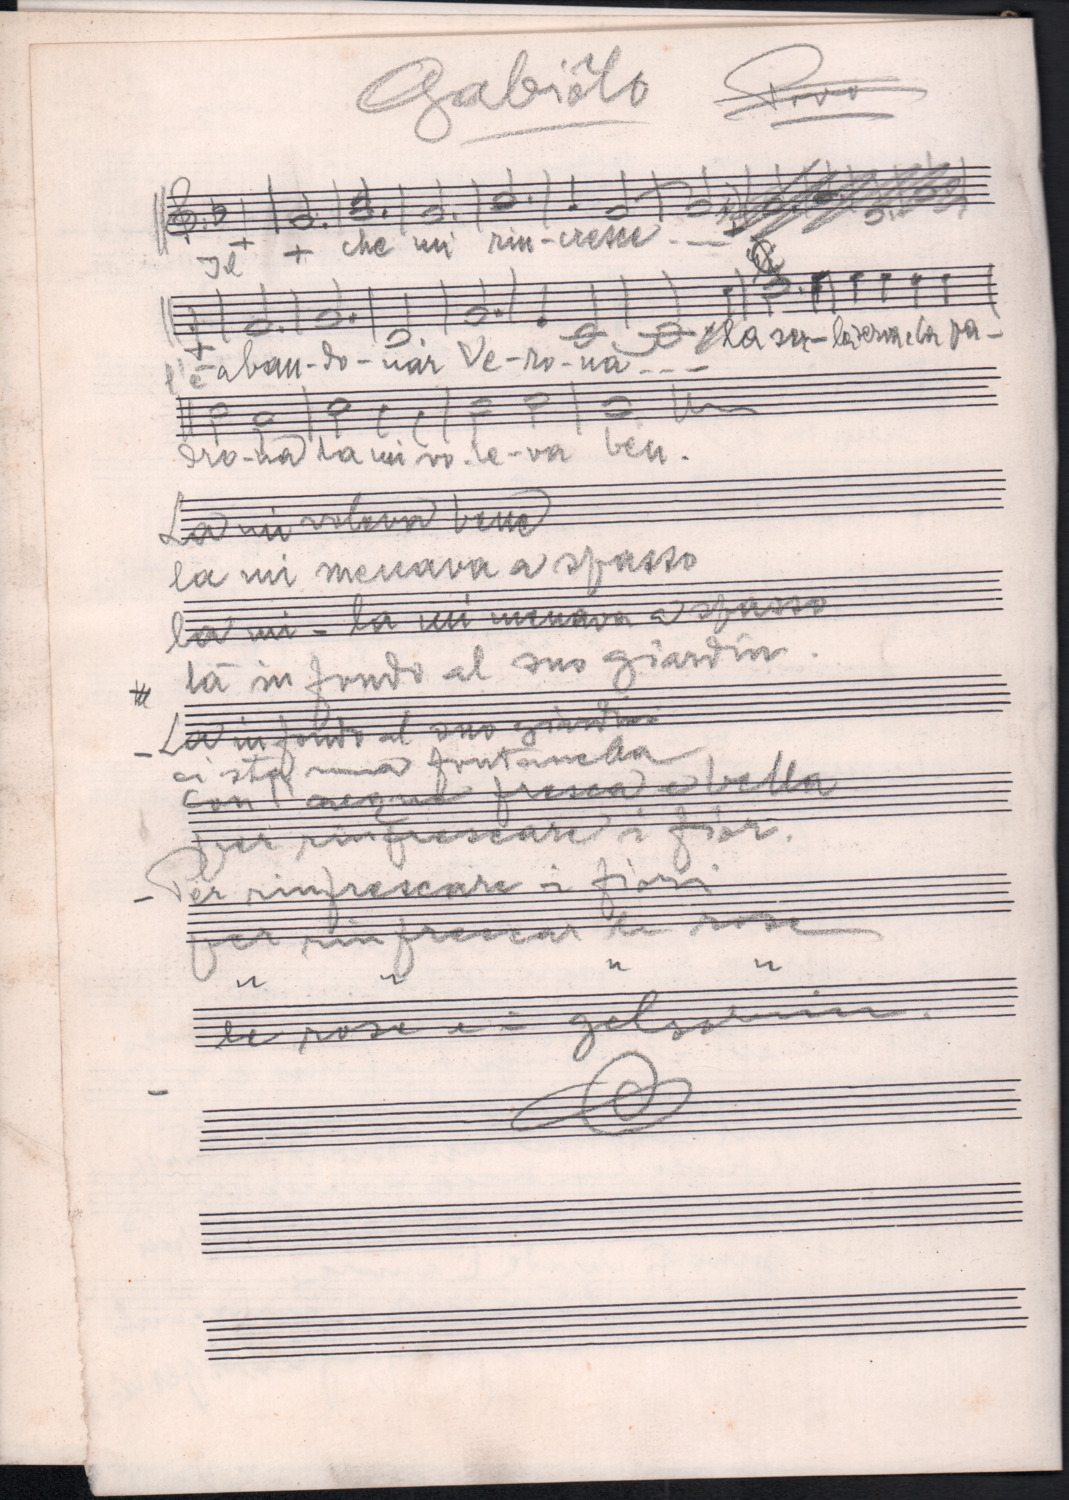 Gabiölo Povo
Il + che mi rin-cresse - - -
l'è abau-do-nár Ve-ro-na - - - La la pa-
dro-na la mi vo-le-va ben.
La mi voleva bene
la mi menava a spasso
la mi - la mi menava a spasso
là in fondo al suo giardin.
- La in fondo al suo giardin
ci sta una fontanela
con acqua fresca e bella
per rinfrescare i fior.
- Per rinfrescare i fiori
per rinfrescar le rose
" " " "
le rose e i gelsomin.